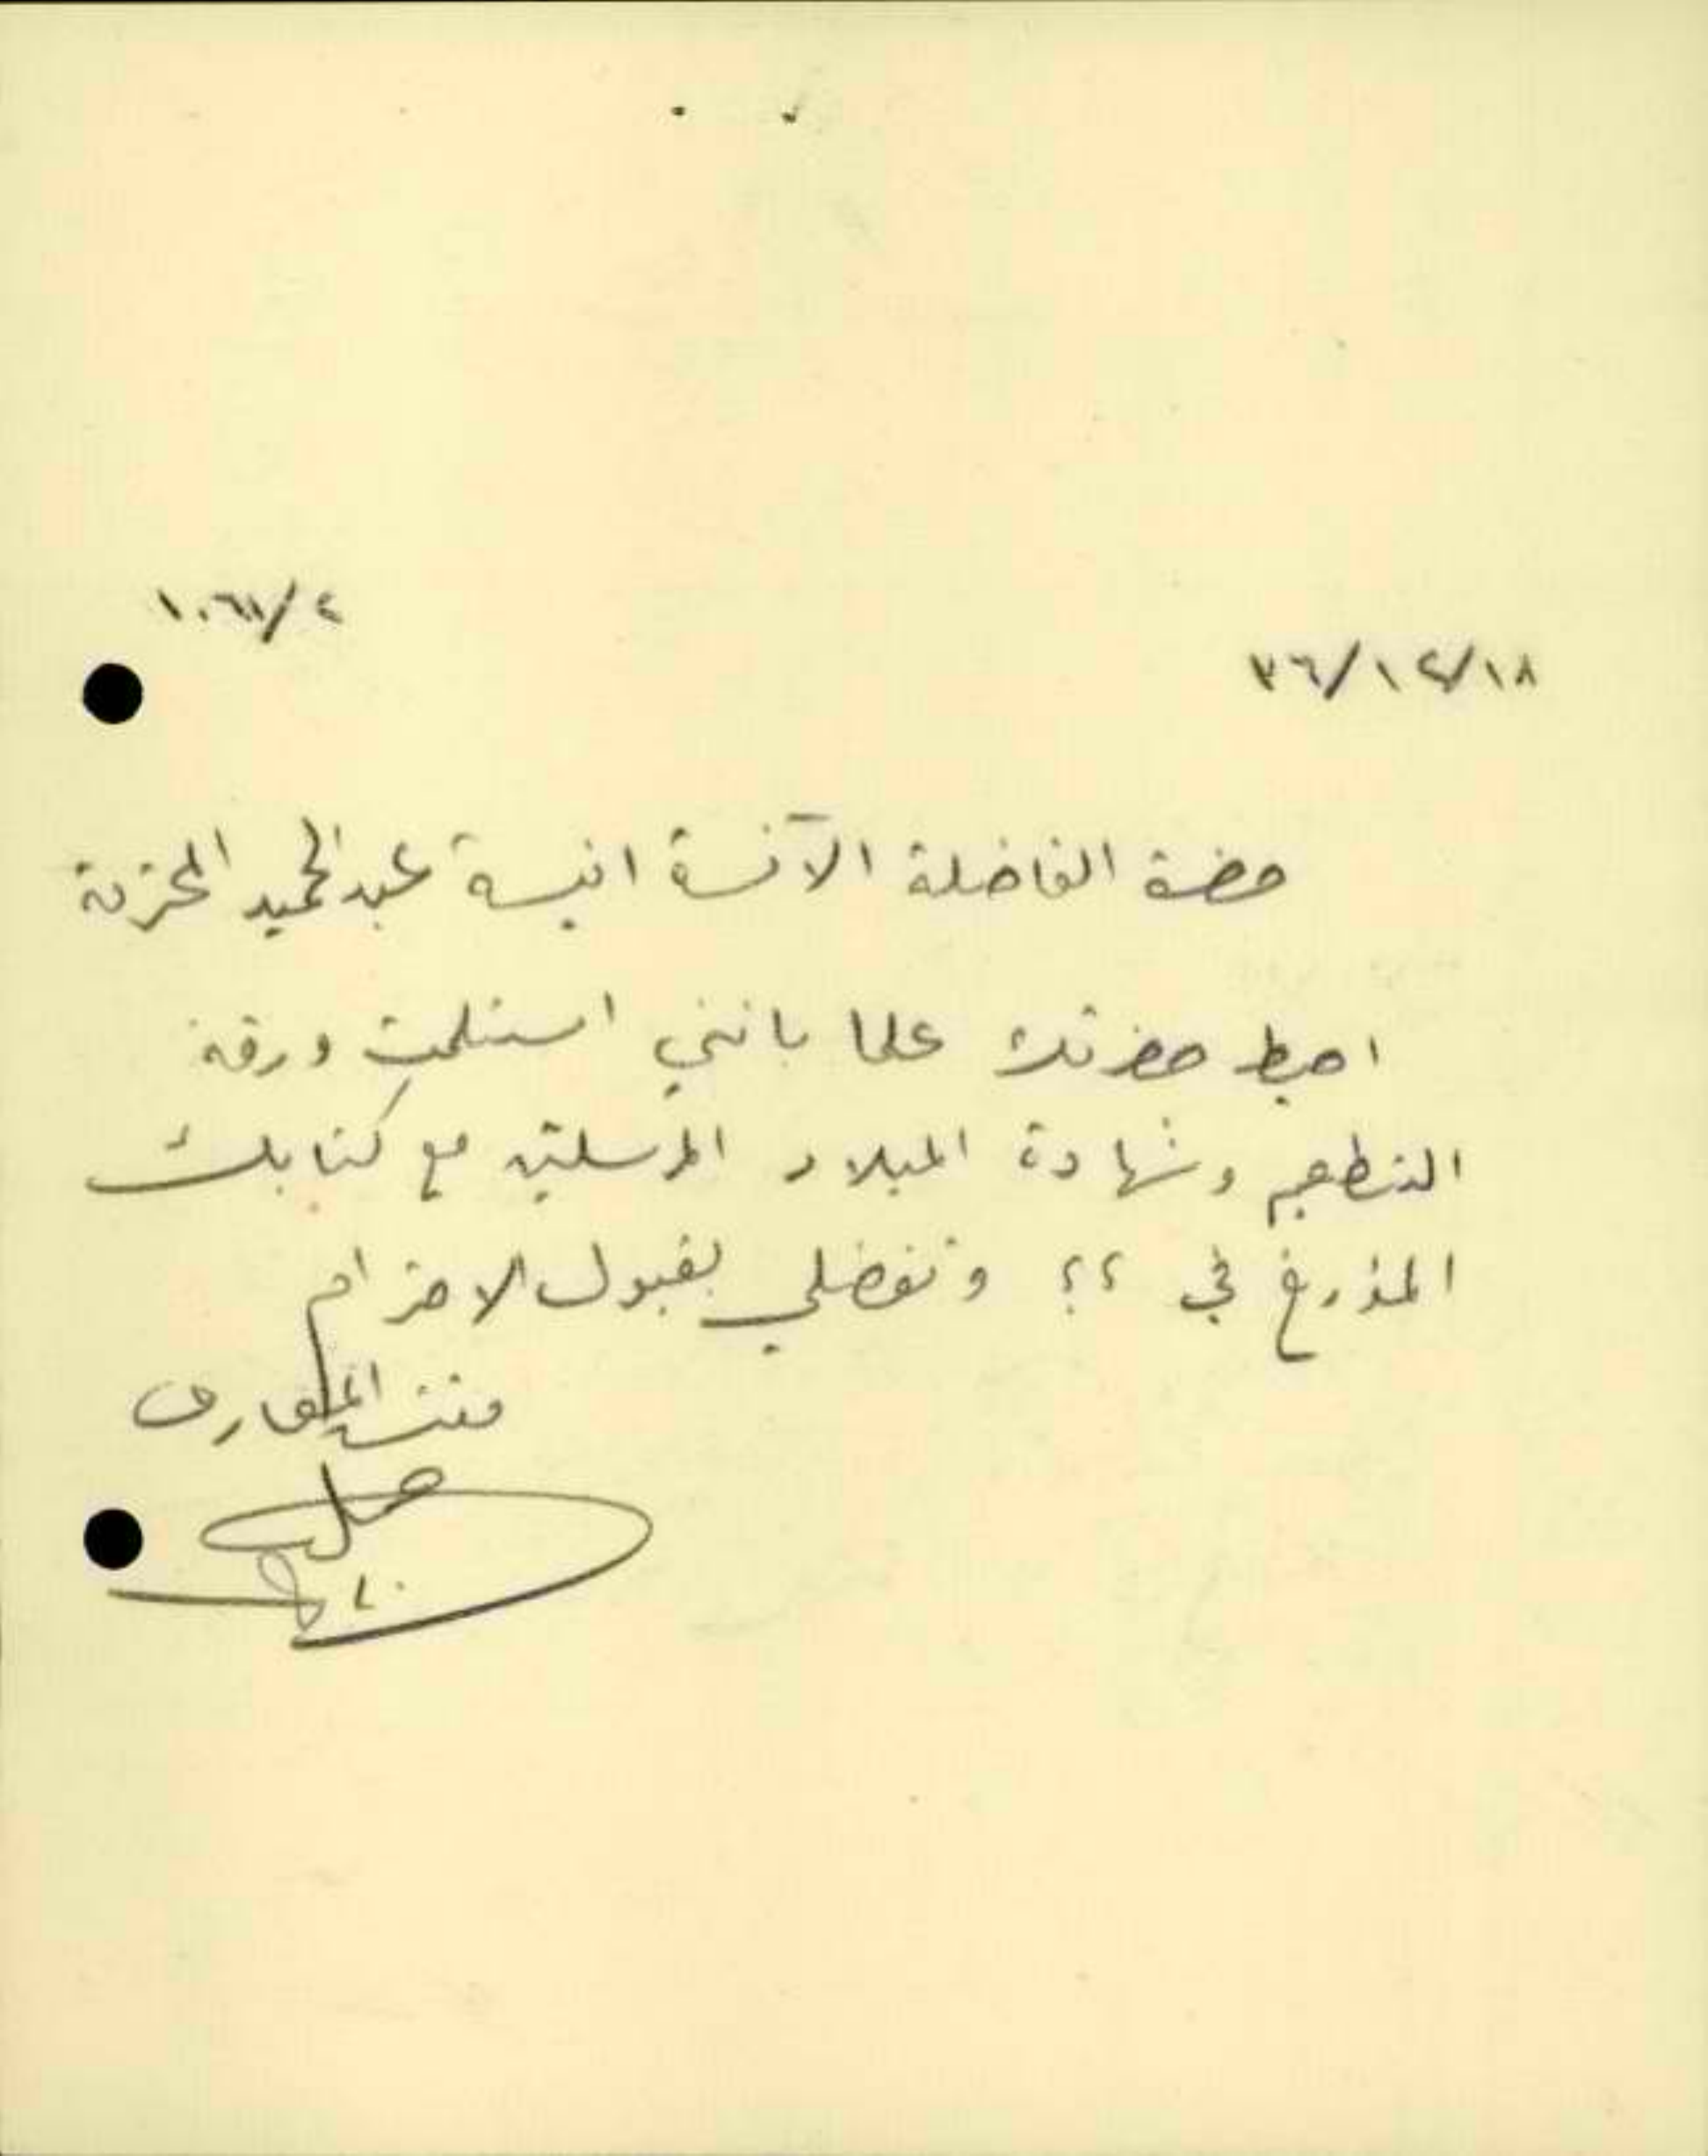 ١٠٦١/٤
٣٦/١٢/١٨
حضرة الفاضلة الآنسة انيسة عبد الحميد المحترمة
احيط حضرتك علما بانني استلمت ورقة
التطعيم وشهادة الميلاد المرسلتين مع كتابك
المؤرخ في ؟؟ وتفضلي بقبول الاحترام
مفتش المعارف